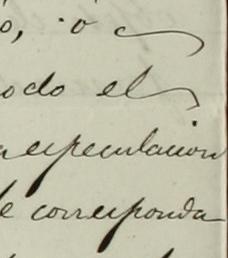 o, o
odo el
especulacion
e corresponda